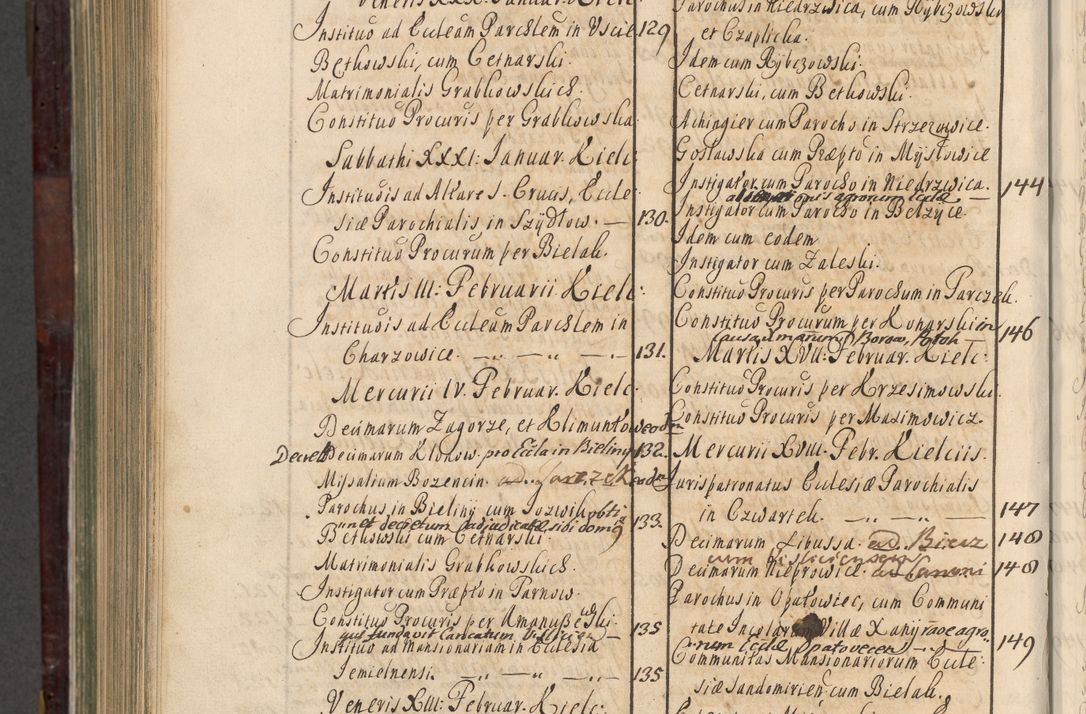 Veneris XXX. Januar. Kielc.
Instituo ad Eccleam Parchlem in Uscie 129
Betkowski, cum Cetnarski.
Matrimonialis Grabkowskich.
Constituo Procuris per Grabkowska
Sabbathi XXXI: Januar. Kielc.
Institudis ad Altare S. Crucis, Eccle
siæ Parochialis in Szydłow. — 130.
Constituo Procurum per Bielak.
Martis III: Februarii Kielc.
Institudis ad Eccleam Parchlem in
Charzowice. — 131.
Mercurii IV. Februar. Kielc.
Decimarum Zagorze, et Klimuntow eodem
Decret Decimarum Klonow. pro Eccla in Bieliny 132.
Myssalium Bozencin. ad
Parochus in Bieliny cum Jozwik
et decretum adjudicatæ sibi 133.
Betkowski cum Cetnarski.
Matrimonialis Grabkowskich.
Instigator cum Præpto in Tarnow.
Constituo Procuris per 
qui fundavit 135
Instituo ad Mansionariam in Ecclesia
Jemielnensi. — 135
Veneris XIII: Februar. Kielc.
Parochus in Niedrzwica, cum Rybczowski
et Czaplicka.
Idem cum Rybczowski.
Cetnarski, cum Betkowski.
Achingier cum Parocho in Strzezowice.
Gosławska cum Præpto in Mysłowice
Instigator cum Parocho in Niedrzwica. 144
agrorum Eccle
Instigator cum Parocho in Bełzyce.
Idem cum eodem
Instigator cum Zaleski.
Constituo Procuris per Parochum in Parczek.
Constituo Procurum per Konarski in 146
causa
Martis XVII: Februar. Kielc.
Constituo Procuris per Krzesimowski.
Constituo Procuris per Maximowicz.
Mercurii XVIII. Febr. Kielciis.
Jurispatronatus Ecclesiæ Parochialis
in Czwartek. — 147
Decimarum Libussa. ad Biecz 148
cum
Decimarum Nieprowice. 148
Parochus in Opatowiec, cum Communi
tate Incolarum Villæ X agro
rum Ecclæ Opatovecen 149
Communitas Mansionariorum Eccle
siæ Sandomirien cum Bielak.